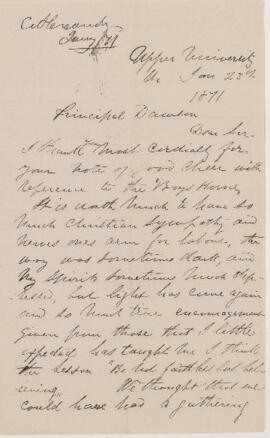 C Alexander
Jany 1871
Upper University
St. Jan 23rd
1871
Principal Dawson
Dear Sir.
I thank you most cordially for
your note of good cheer with
reference to the Boys Home
It is worth much to have so
much Christian sympathy and
nerves ones arm for labour, the
way was sometimes dark, and
my spirits sometimes much dep-
ressed, but light has come again
and so much true encouragement
given from those that I little
expected has taught me I think
the lesson "Be not faithless but bel-
ieving" We thought that we
could have had a gathering